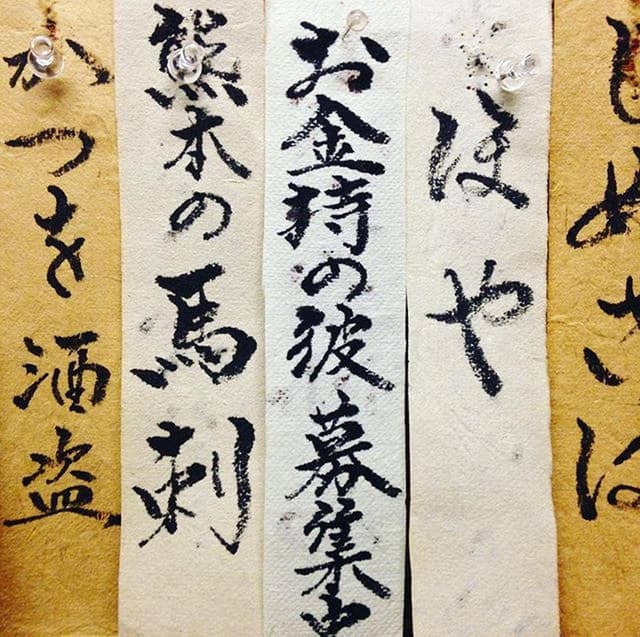 しめさば
ほや
お金持の彼募集中
熊本の馬刺
かつを酒盗